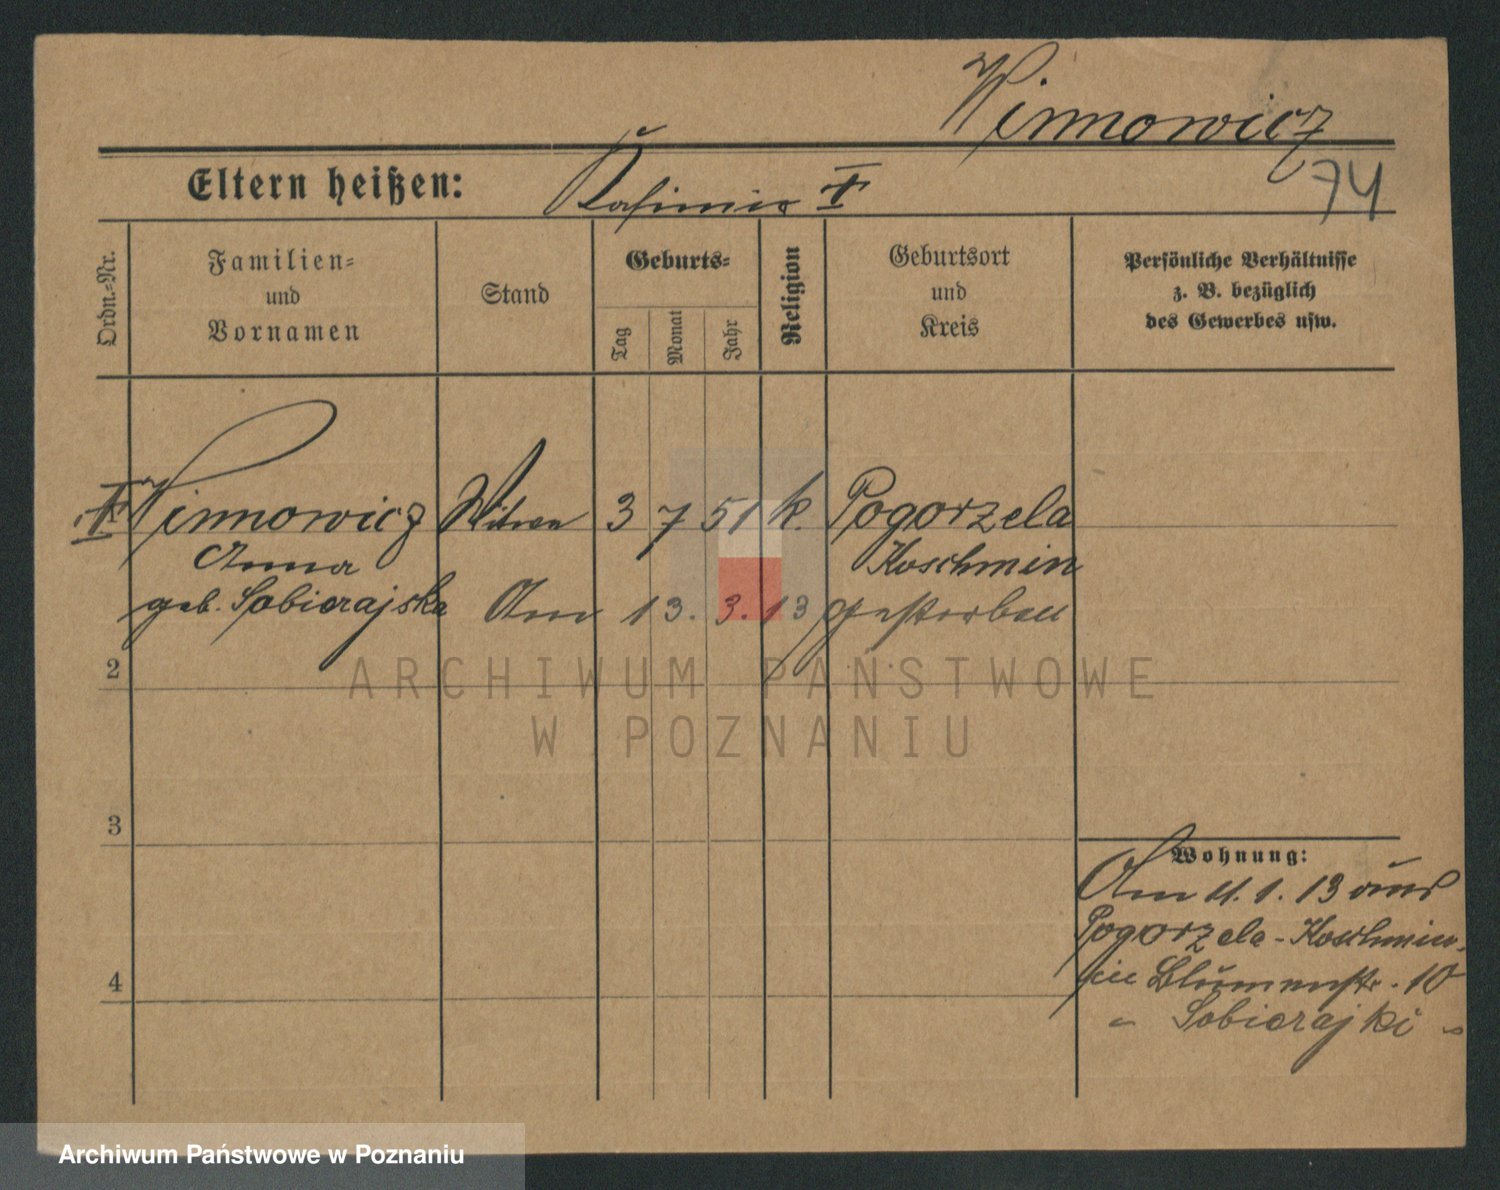 Winnowicz
74
Eltern heißen: Kasimir
Ordn.=Nr.
Familien=
und
Vornamen
Stand
Geburts=
Tag
Monat
Jahr
Religion
Geburtsort
und
Kreis
Persönliche Verhältnisse
z. B. bezüglich
des Gewerbes usw.
Winnowicz Witwe 3 7 51 k. Pogorzela
Anna Koschmin
geb. Sobierajska Am 13. 3. 13 gestorben
2
3
4
Wohnung:
Am 11. 1. 13 aus
Pogorzela-Koschmin,
Blumenstr. 10
" Sobierajki "
ARCHIWUM PAŃSTWOWE
W POZNANIU
Archiwum Państwowe w Poznaniu